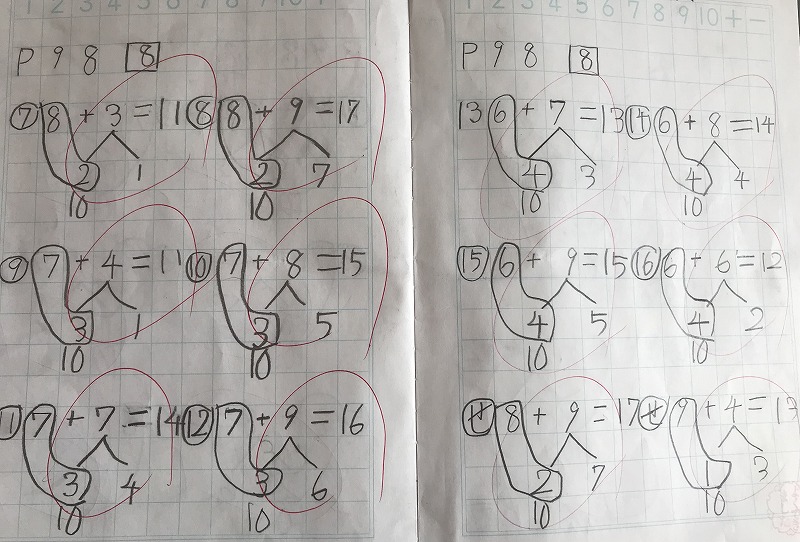 P 9 8 8
⑦ 8 + 3 = 11 ⑧ 8 + 9 = 17
2 1 2 7
10 10
⑨ 7 + 4 = 11 ⑩ 7 + 8 = 15
3 1 3 5
10 10
⑪ 7 + 7 = 14 ⑫ 7 + 9 = 16
3 4 3 6
10 10
P 9 8 8
13 6 + 7 = 13 ⑭ 6 + 8 = 14
4 3 4 4
10 10
⑮ 6 + 9 = 15 ⑯ 6 + 6 = 12
4 5 4 2
10 10
8 + 9 = 17 9 + 4 = 13
2 7 1 3
10 10